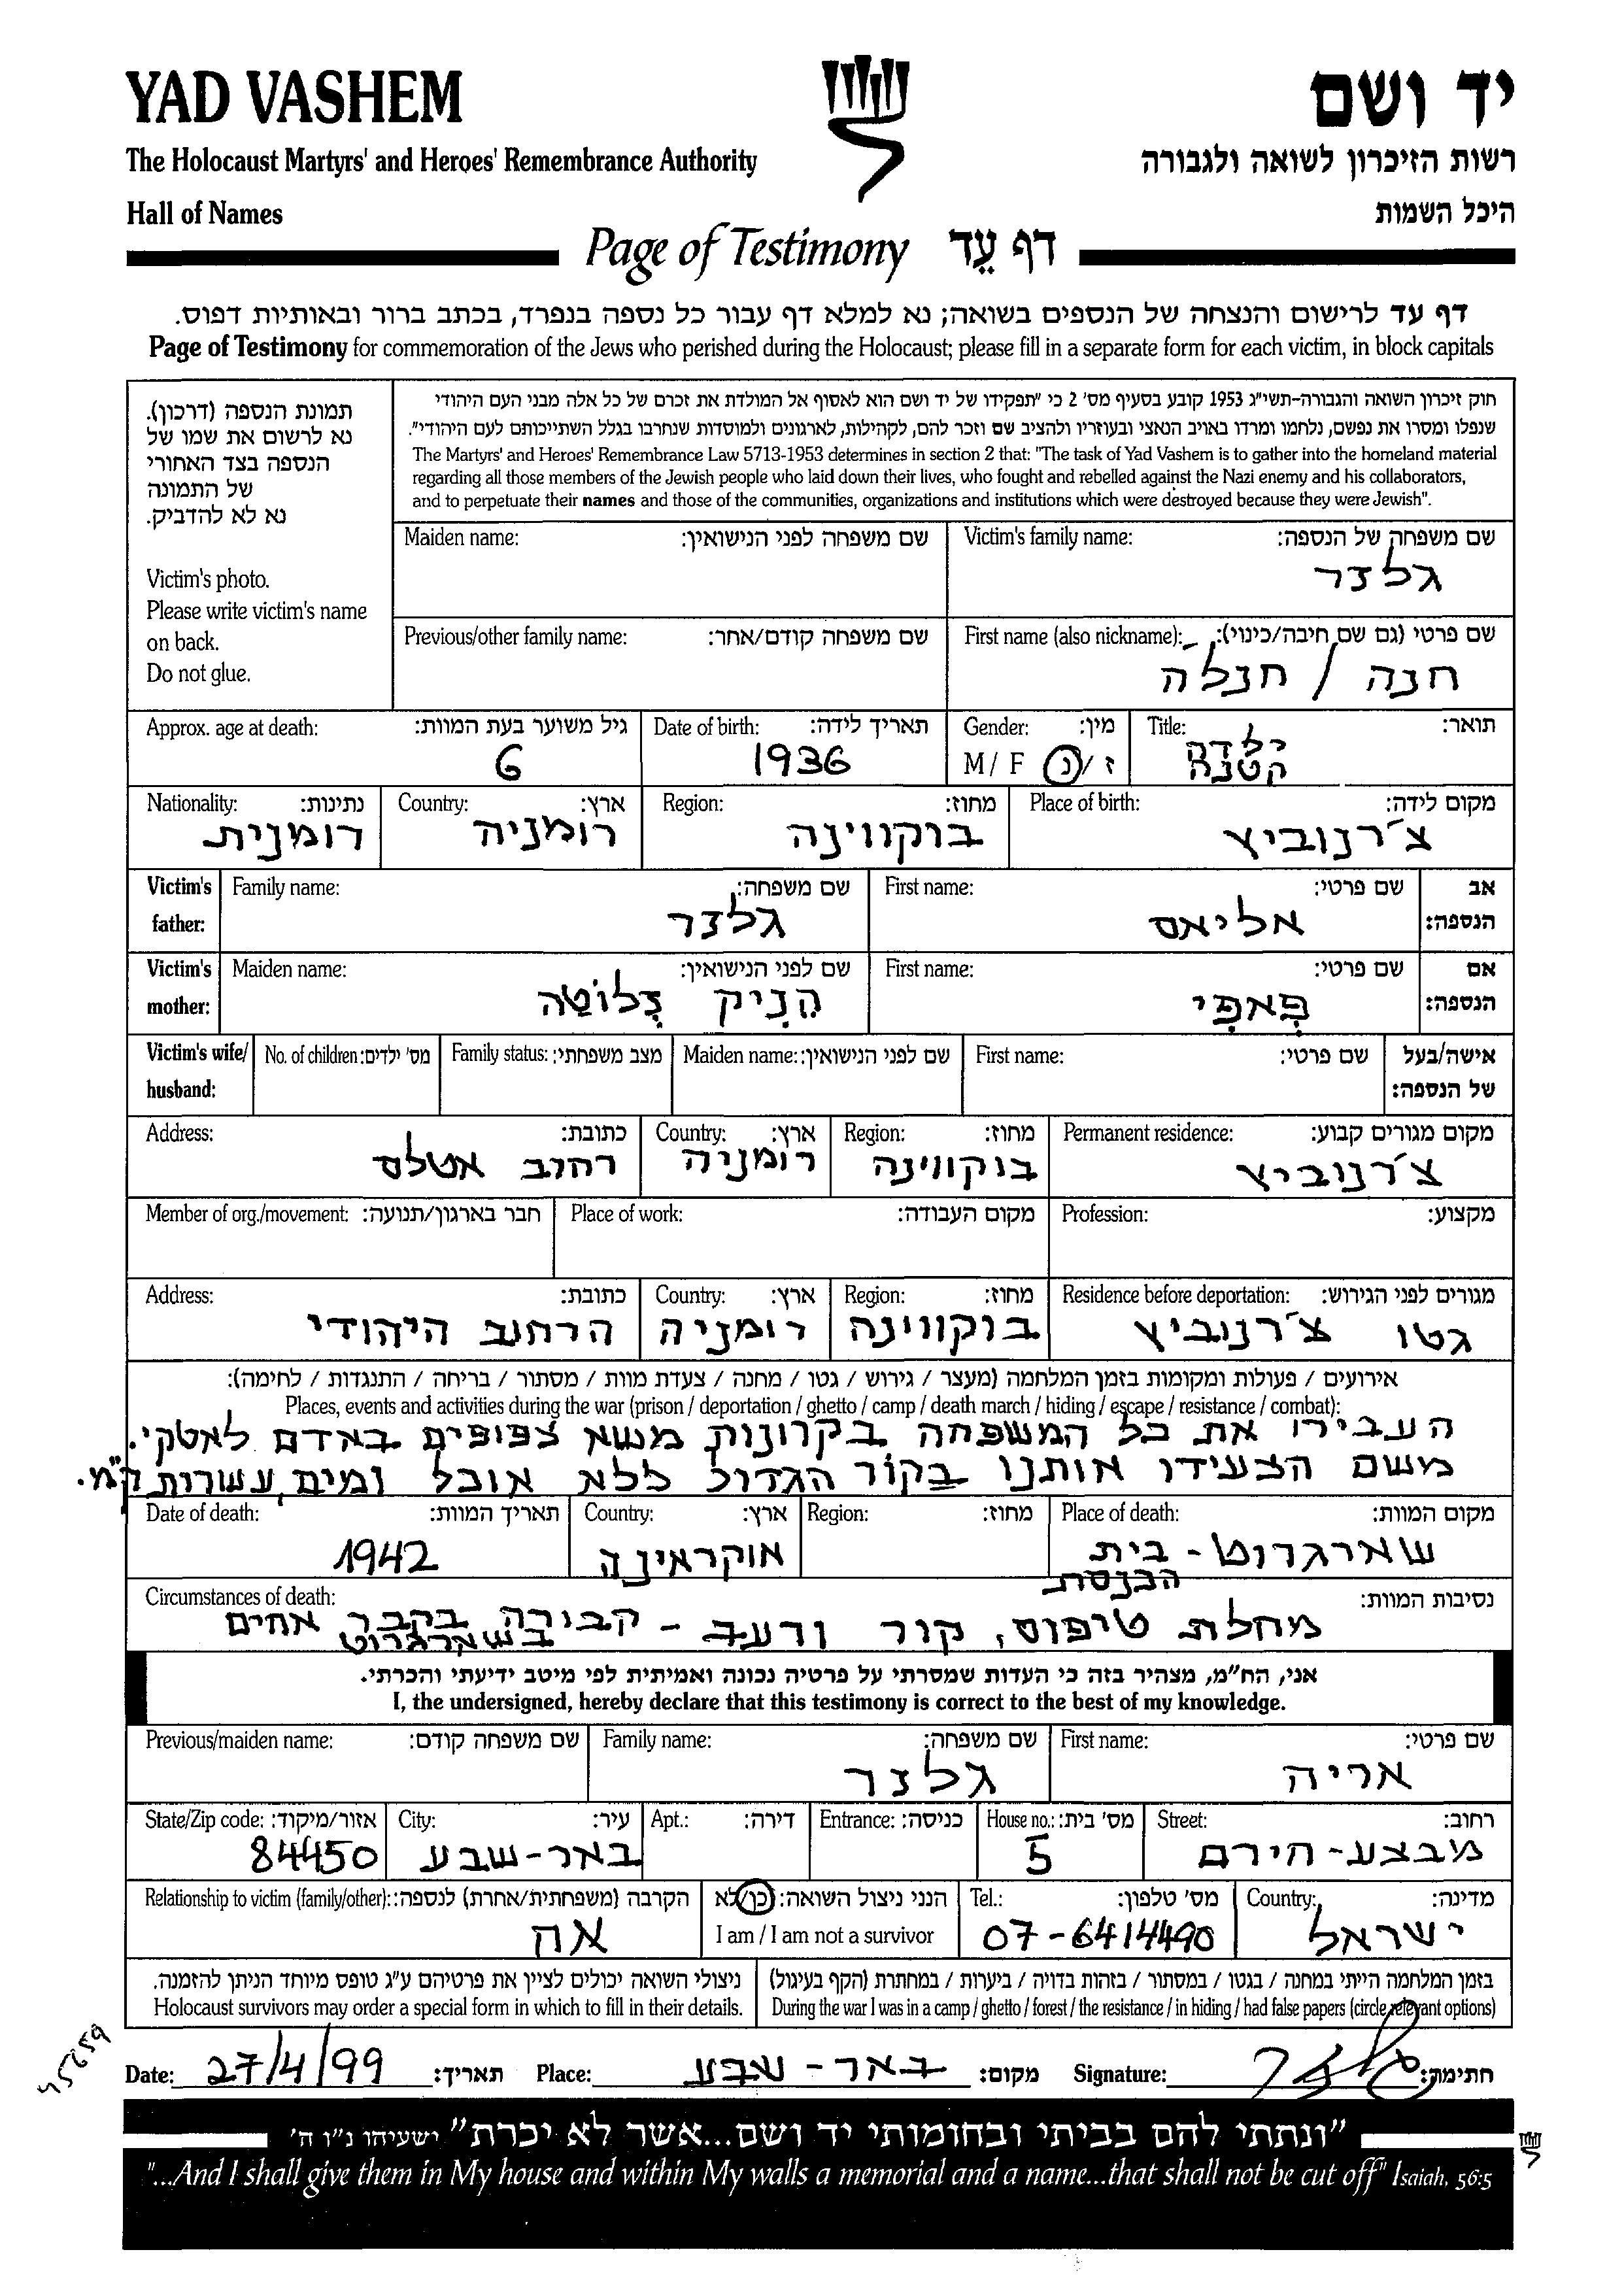 YAD VASHEM
יד ושם
The Holocaust Martyrs' and Heroes' Remembrance Authority
רשות הזיכרון לשואה ולגבורה
Hall of Names
היכל השמות
Page of Testimony דף עֵד
דף עד לרישום והנצחה של הנספים בשואה; נא למלא דף עבור כל נספה בנפרד, בכתב ברור ובאותיות דפוס.
Page of Testimony for commemoration of the Jews who perished during the Holocaust; please fill in a separate form for each victim, in block capitals
תמונת הנספה (דרכון).
נא לרשום את שמו של
הנספה בצד האחורי
של התמונה
נא לא להדביק.
Victim's photo.
Please write victim's name
on back.
Do not glue.
חוק זיכרון השואה והגבורה-תשי"ג 1953 קובע בסעיף מס' 2 כי "תפקידו של יד ושם הוא לאסוף אל המולדת את זכרם של כל אלה מבני העם היהודי
שנפלו ומסרו את נפשם, נלחמו ומרדו באויב הנאצי ובעוזריו ולהציב שם וזכר להם, לקהילות, לארגונים ולמוסדות שנחרבו בגלל השתייכותם לעם היהודי".
The Martyrs' and Heroes' Remembrance Law 5713-1953 determines in section 2 that: "The task of Yad Vashem is to gather into the homeland material
regarding all those members of the Jewish people who laid down their lives, who fought and rebelled against the Nazi enemy and his collaborators,
and to perpetuate their names and those of the communities, organizations and institutions which were destroyed because they were Jewish".
Victim's family name: שם משפחה של הנספה:
גלצר
Maiden name: שם משפחה לפני הנישואין:
First name (also nickname): שם פרטי (גם שם חיבה/כינוי):
חנה / חנלה
Previous/other family name: שם משפחה קודם/אחר:
Title: תואר:
ילדה
קטנה
Gender: מין:
M / F ז / נ
Date of birth: תאריך לידה:
1936
Approx. age at death: גיל משוער בעת המוות:
6
Place of birth: מקום לידה:
צ'רנוביץ
Region: מחוז:
בוקווינה
Country: ארץ:
רומניה
Nationality: נתינות:
רומנית
Victim's father: אב הנספה:
First name: שם פרטי:
אליאס
Family name: שם משפחה:
גלצר
Victim's mother: אם הנספה:
First name: שם פרטי:
פאפי
Maiden name: שם לפני הנישואין:
הניק צלוטה
Victim's wife/ husband: אישה/בעל של הנספה:
First name: שם פרטי:
Maiden name: שם לפני הנישואין:
Family status: מצב משפחתי:
No. of children: מס' ילדים:
Permanent residence: מקום מגורים קבוע:
צ'רנוביץ
Region: מחוז:
בוקווינה
Country: ארץ:
רומניה
Address: כתובת:
רחוב אטלס
Profession: מקצוע:
Place of work: מקום העבודה:
Member of org./movement: חבר בארגון/תנועה:
Residence before deportation: מגורים לפני הגירוש:
גטו צ'רנוביץ
Region: מחוז:
בוקווינה
Country: ארץ:
רומניה
Address: כתובת:
הרחוב היהודי
אירועים / פעולות ומקומות בזמן המלחמה (מעצר / גירוש / גטו / מחנה / צעדת מוות / מסתור / בריחה / התנגדות / לחימה):
Places, events and activities during the war (prison / deportation / ghetto / camp / death march / hiding / escape / resistance / combat):
העבירו את כל המשפחה בקרונות משא צפופים באדם לאטקי.
משם הצעידו אותנו בקור הגדול ללא אוכל ומים, עשרות ק"מ.
Place of death: מקום המוות:
שארגרוט - בית
הכנסת
Region: מחוז:
Country: ארץ:
אוקראינה
Date of death: תאריך המוות:
1942
Circumstances of death: נסיבות המוות:
מחלת טיפוס, קור ורעב - קבורה בקבר אחים
בשארגרוט
אני, הח"מ, מצהיר בזה כי העדות שמסרתי על פרטיה נכונה ואמיתית לפי מיטב ידיעתי והכרתי.
I, the undersigned, hereby declare that this testimony is correct to the best of my knowledge.
First name: שם פרטי:
אריה
Family name: שם משפחה:
גלצר
Previous/maiden name: שם משפחה קודם:
Street: רחוב:
מבצע-חירם
House no.: מס' בית:
5
Entrance: כניסה:
Apt.: דירה:
City: עיר:
באר-שבע
State/Zip code: אזור/מיקוד:
84450
Country: מדינה:
ישראל
Tel.: מס' טלפון:
07-6414490
הנני ניצול השואה: כן/לא
I am / I am not a survivor
Relationship to victim (family/other): הקרבה (משפחתית/אחרת) לנספה:
אח
בזמן המלחמה הייתי במחנה / בגטו / במסתור / בזהות בדויה / ביערות / במחתרת (הקף בעיגול)
During the war I was in a camp / ghetto / forest / the resistance / in hiding / had false papers (circle relevant options)
ניצולי השואה יכולים לציין את פרטיהם ע"ג טופס מיוחד הניתן להזמנה.
Holocaust survivors may order a special form in which to fill in their details.
Date: 27/4/99 תאריך: Place: באר-שבע מקום: Signature: גלצר חתימה:
"ונתתי להם בביתי ובחומותי יד ושם...אשר לא יכרת" ישעיהו נ"ו ה'
"...And I shall give them in My house and within My walls a memorial and a name...that shall not be cut off" Isaiah, 56:5